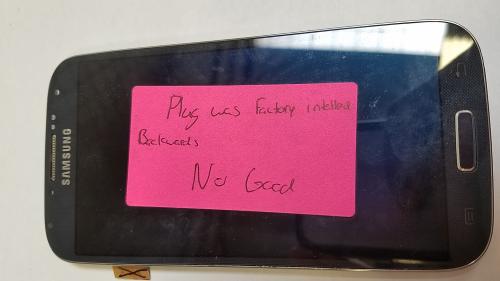 SAMSUNG
Plug was Factory intalled
Backwards
No Good
X